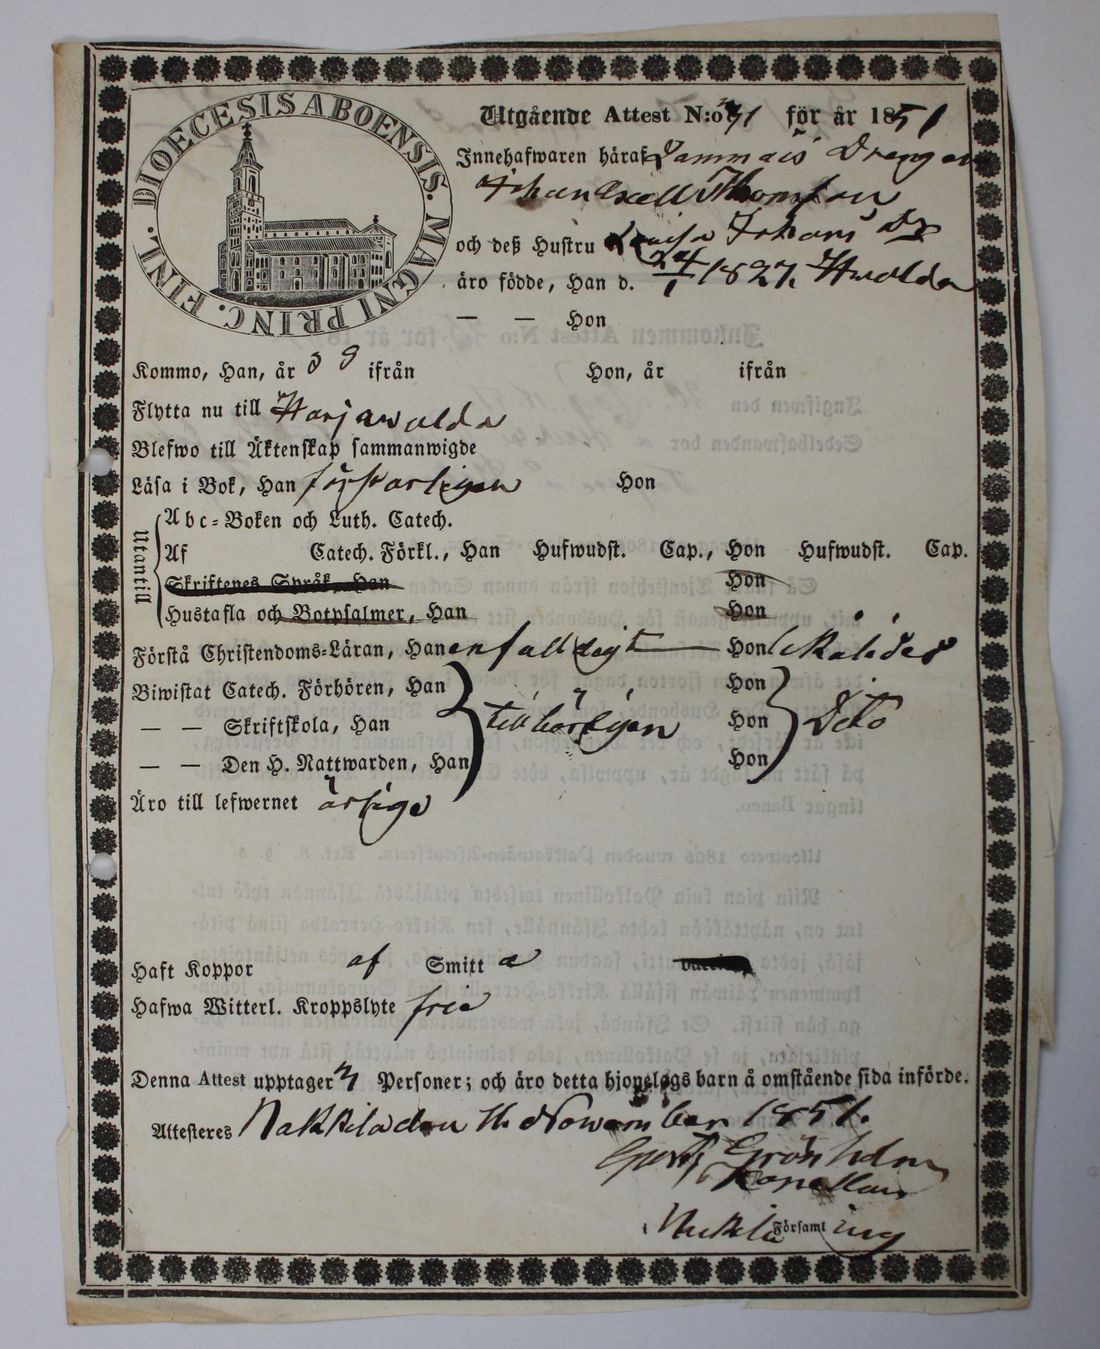 DIOECESIS ABOENSIS. MAGNI PRINC. FINL.
Utgående Attest N:o 71 för år 1851
Innehafwaren häraf Drengen
Johan
och deß Hustru Lovisa Johans Dr
äro födde, Han d. 24/1 1827.
— — Hon
Kommo, Han, år ifrån Hon, år ifrån
Flytta nu till Harjawalda
Blefwo till Äktenskap sammanwigde
Läsa i Bok, Han försvarligen Hon
Utantill
Abc-Boken och Luth. Catech.
Af Catech. Förkl., Han Hufwudst. Cap., Hon Hufwudst. Cap.
Skriftenes Språk, Han Hon
Hustafla och Botpsalmer, Han Hon
Förstå Christendoms-Läran, Han enfalldigt Hon likaledes
Biwistat Catech. Förhören, Han Hon
— — Skriftskola, Han tillbörligen Hon Dito
— — Den H. Nattwarden, Han Hon
Äro till lefwernet ärlige
Haft Koppor af Smitta
Hafwa Witterl. Kroppslyte frie
Denna Attest upptager Personer; och äro detta hjonelags barn å omstående sida införde.
Attesteres Nakkila den 11. November 1851.
Grönholm
Kapellan
i Nakkila Församling